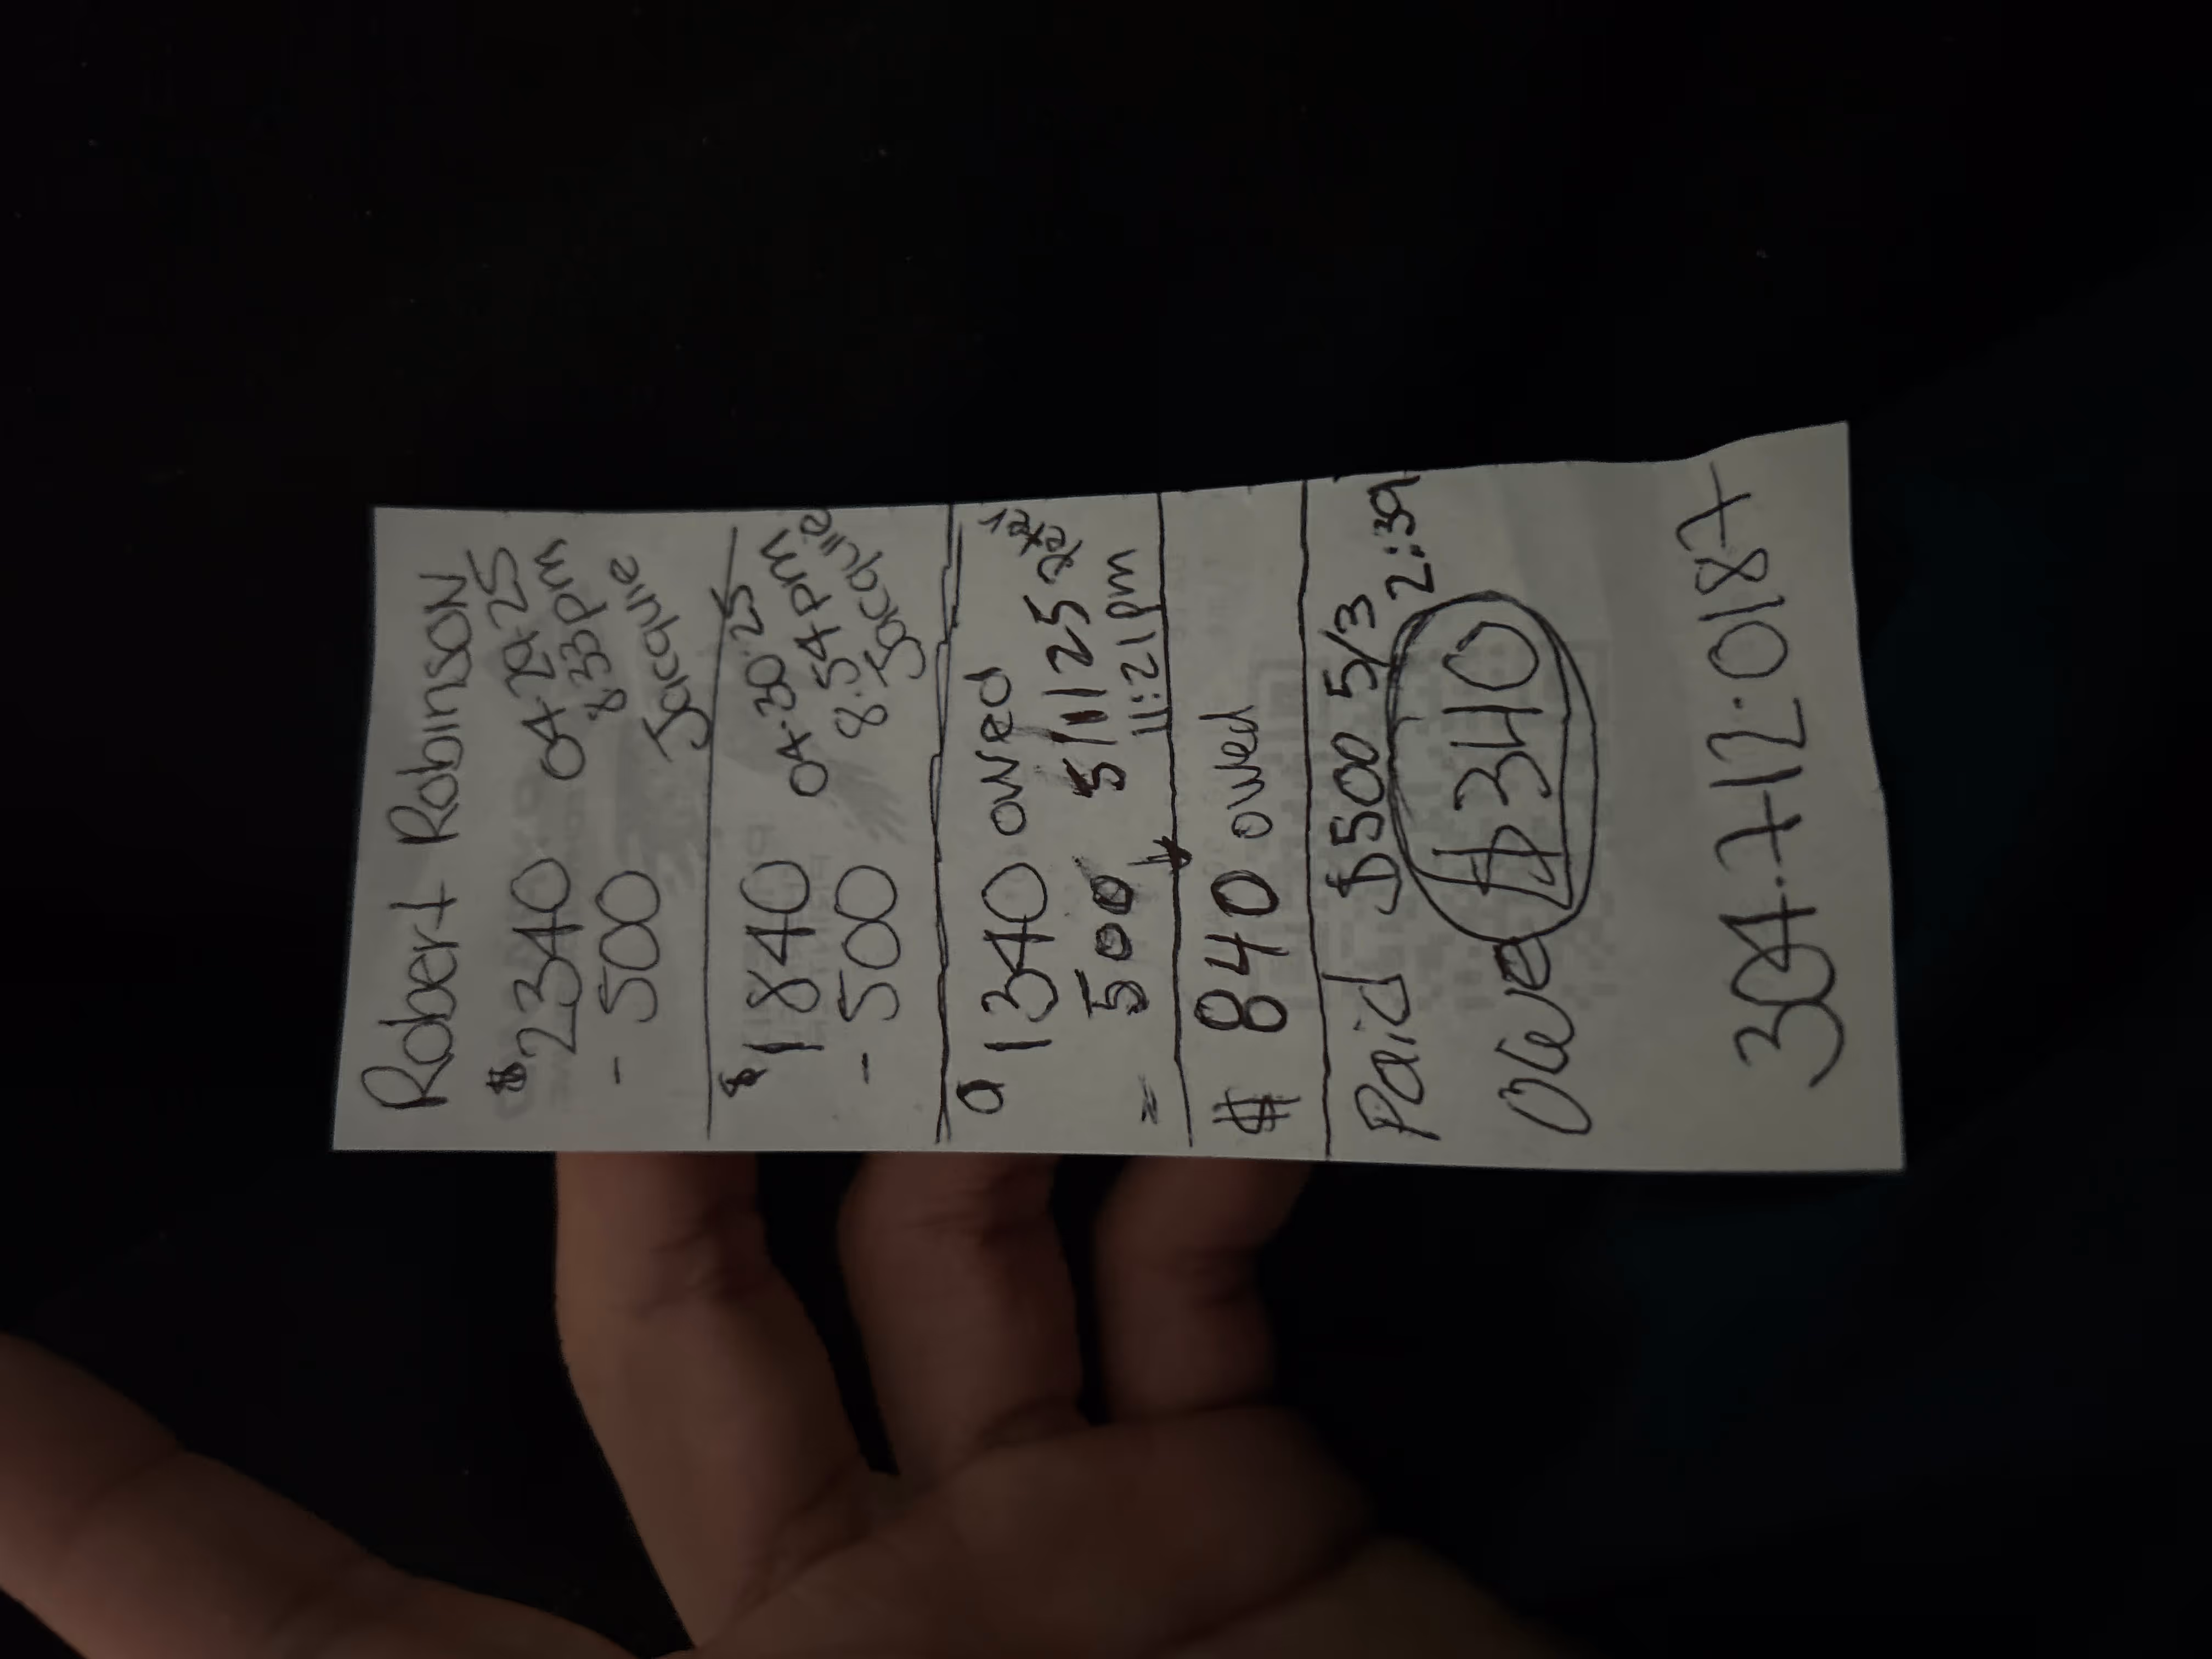 Robert Robinson
$2340 04.29.25
- 500 8:33pm
Jacquie
$1840 04.30.25
- 500 8:54pm
Jacquie
1340 owed
500 5/1/25
= 11:21pm
$ 840 owed
Paid $500 5/3 2:39
Owe $340
304.712.0187